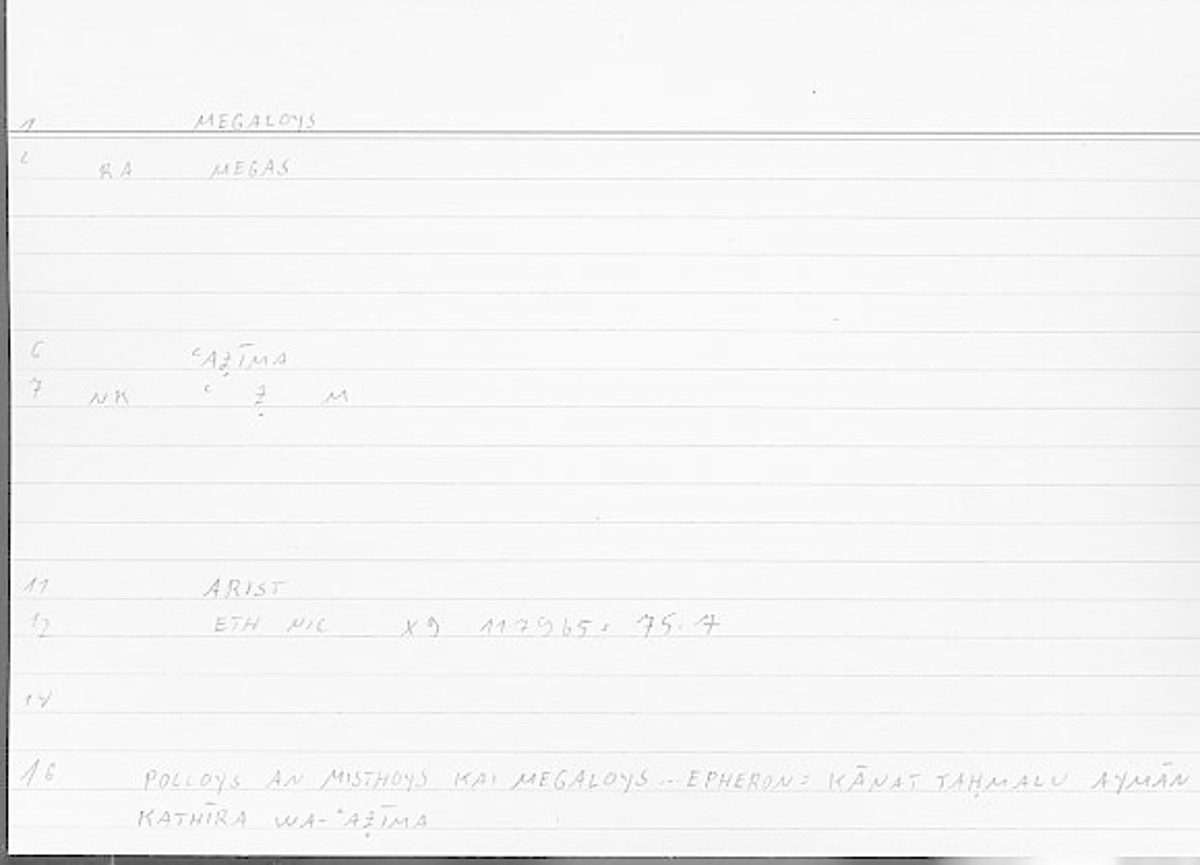 1 MEGALOYS
2 RA MEGAS
6 ʿAẒĪMA
7 NK ʿ Ẓ M
11 ARIST
12 ETH NIC X 9 1179b5 = 75.7
14
16 POLLOYS AN MISTHOYS KAI MEGALOYS -- EPHERON = KĀNAT TAḤMALU AYMĀN
KATHĪRA WA-ʿAẒĪMA